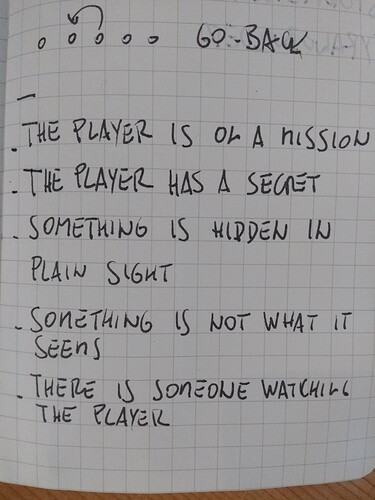 GO-BACK
- THE PLAYER IS ON A MISSION
- THE PLAYER HAS A SECRET
- SOMETHING IS HIDDEN IN
PLAIN SIGHT
- SOMETHING IS NOT WHAT IT
SEEMS
- THERE IS SOMEONE WATCHING
THE PLAYER